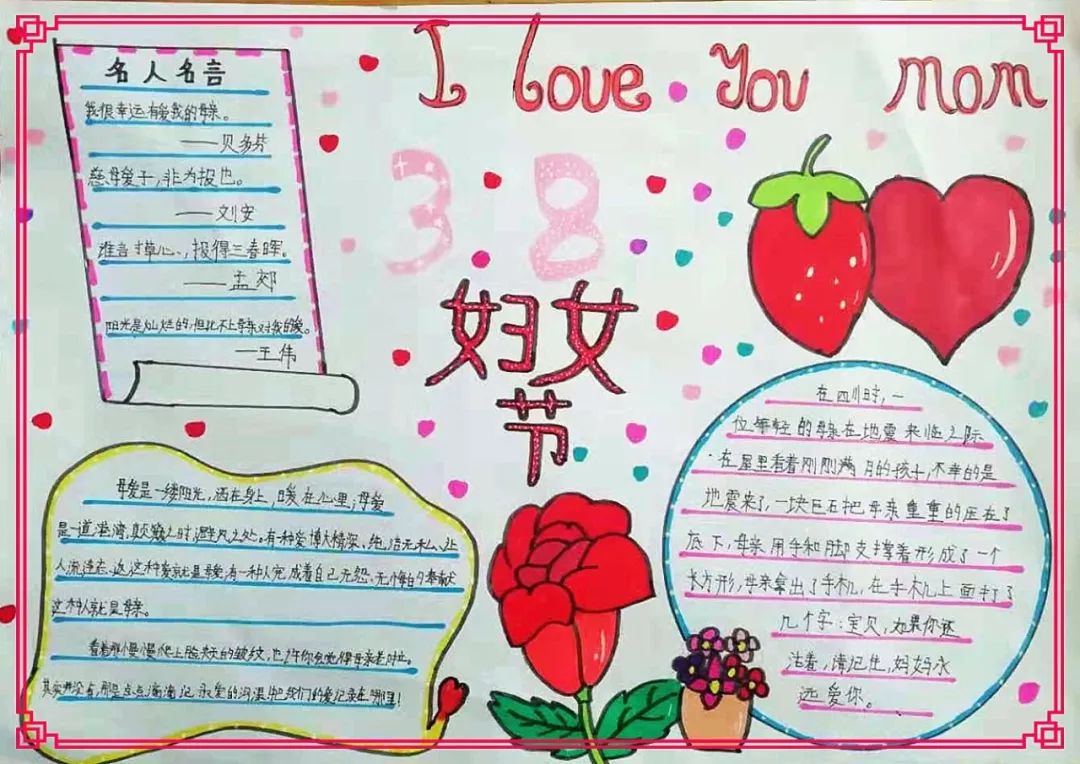 I Love You Mom
38
妇女
节
名人名言
我很幸运有爱我的母亲。
——贝多芬
慈母爱子,非为报也。
——刘安
谁言寸草心,报得三春晖。
——孟郊
阳光是灿烂的,但比不上母亲对我的爱。
—王伟
母爱是一缕阳光,洒在身上,暖在心里;母爱
是一道港湾,颠簸之时,避风之处。有种爱博大精深、纯洁无私、让
人流连忘返,这种爱就是母爱;有一种人完成着自己无怨、无悔的奉献
这种人就是母亲。
看着那慢慢爬上脸庞的皱纹,也许你会觉得母亲老时,
其实并没有,那是点点滴滴记录爱的沟渠把我们的爱记录在那里!
在四川时,一
位年轻的母亲在地震来临之际
在屋里看着刚刚满月的孩子,不幸的是
地震来了,一块巨石把母亲重重的压在了
底下,母亲用手和脚支撑着形成了一个
长方形,母亲拿出了手机,在手机上面打了
几个字:宝贝,如果你还
活着,请记住,妈妈永
远爱你。